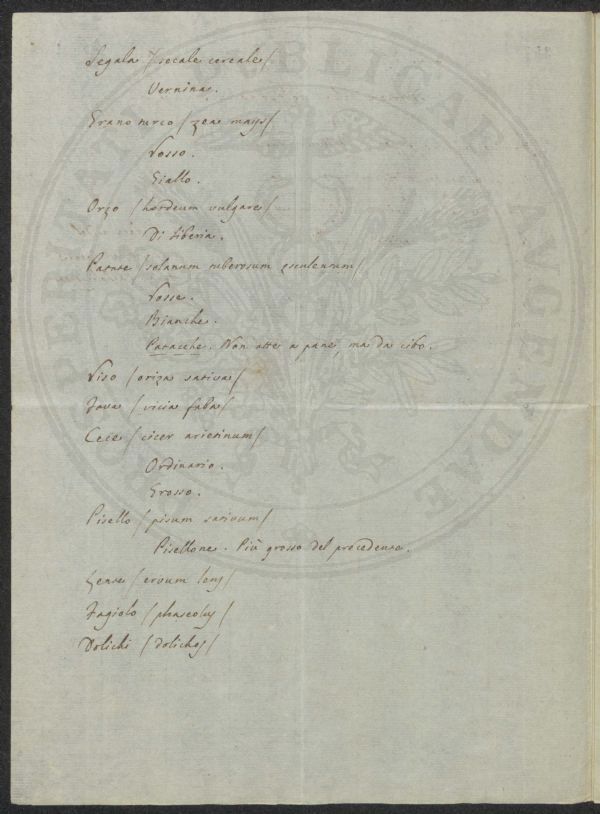 Segala /secale cereale/
Vernina.
Grano turco /zea mays/
Rosso.
Giallo.
Orzo /hordeum vulgare/
Di Siberia.
Patate /solanum tuberosum esculentum/
Rosse.
Bianche.
Patacche. Non atte a pane, ma da cibo.
Riso /oriza sativa/
Fava /vicia faba/
Cece /cicer arietinum/
Ordinario.
Grosso.
Pisello /pisum sativum/
Pisellone. Più grosso del precedente.
Lente /ervum lens/
Fagiolo /phaseolus/
Dolichi /dolichos/